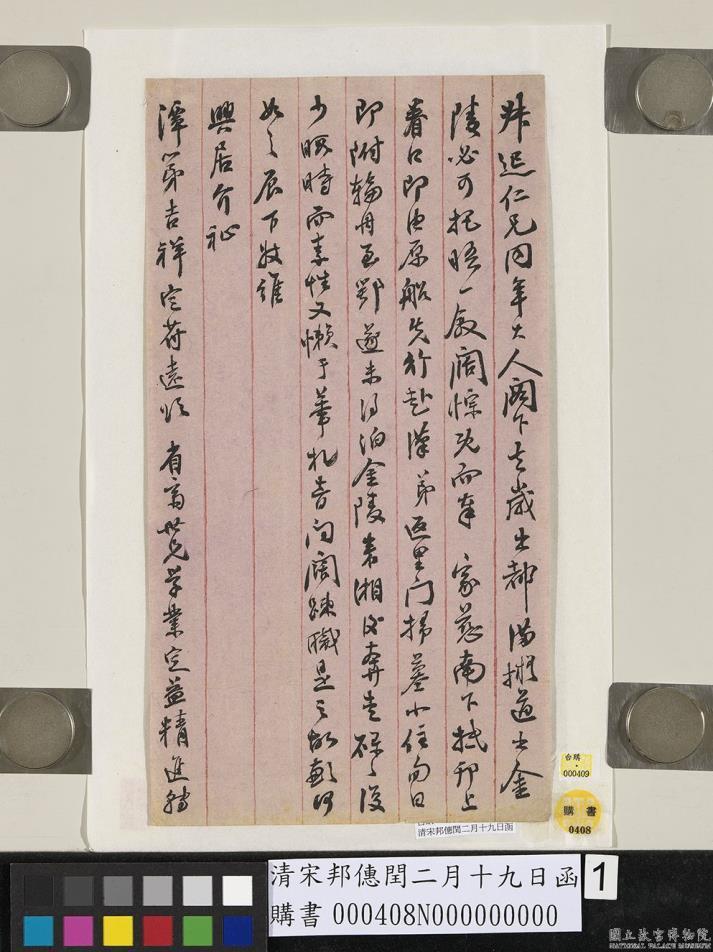 叔遲仁兄同年大人閣下去歲出都滿擬道出金
陵必可把晤一敘闊悰既而奉 家慈南下抵
春江即由原船先行赴漢弟返里門掃墓小住旬日
即附輪舟至鄂遂未得泊金陵来湘後奔走碌碌
少暇時而素性又懶于筆札音问闊疎職是之故歉
如之辰下敬維
興居介祉
潭第吉祥定符遠頌 有齋世兄學業定益精進
台購
000409
購書
0408
清宋邦僡閏二月十九日函
清宋邦僡閏二月十九日函
購書 000408N000000000
1
國立故宮博物院
NATIONAL PALACE MUSEUM